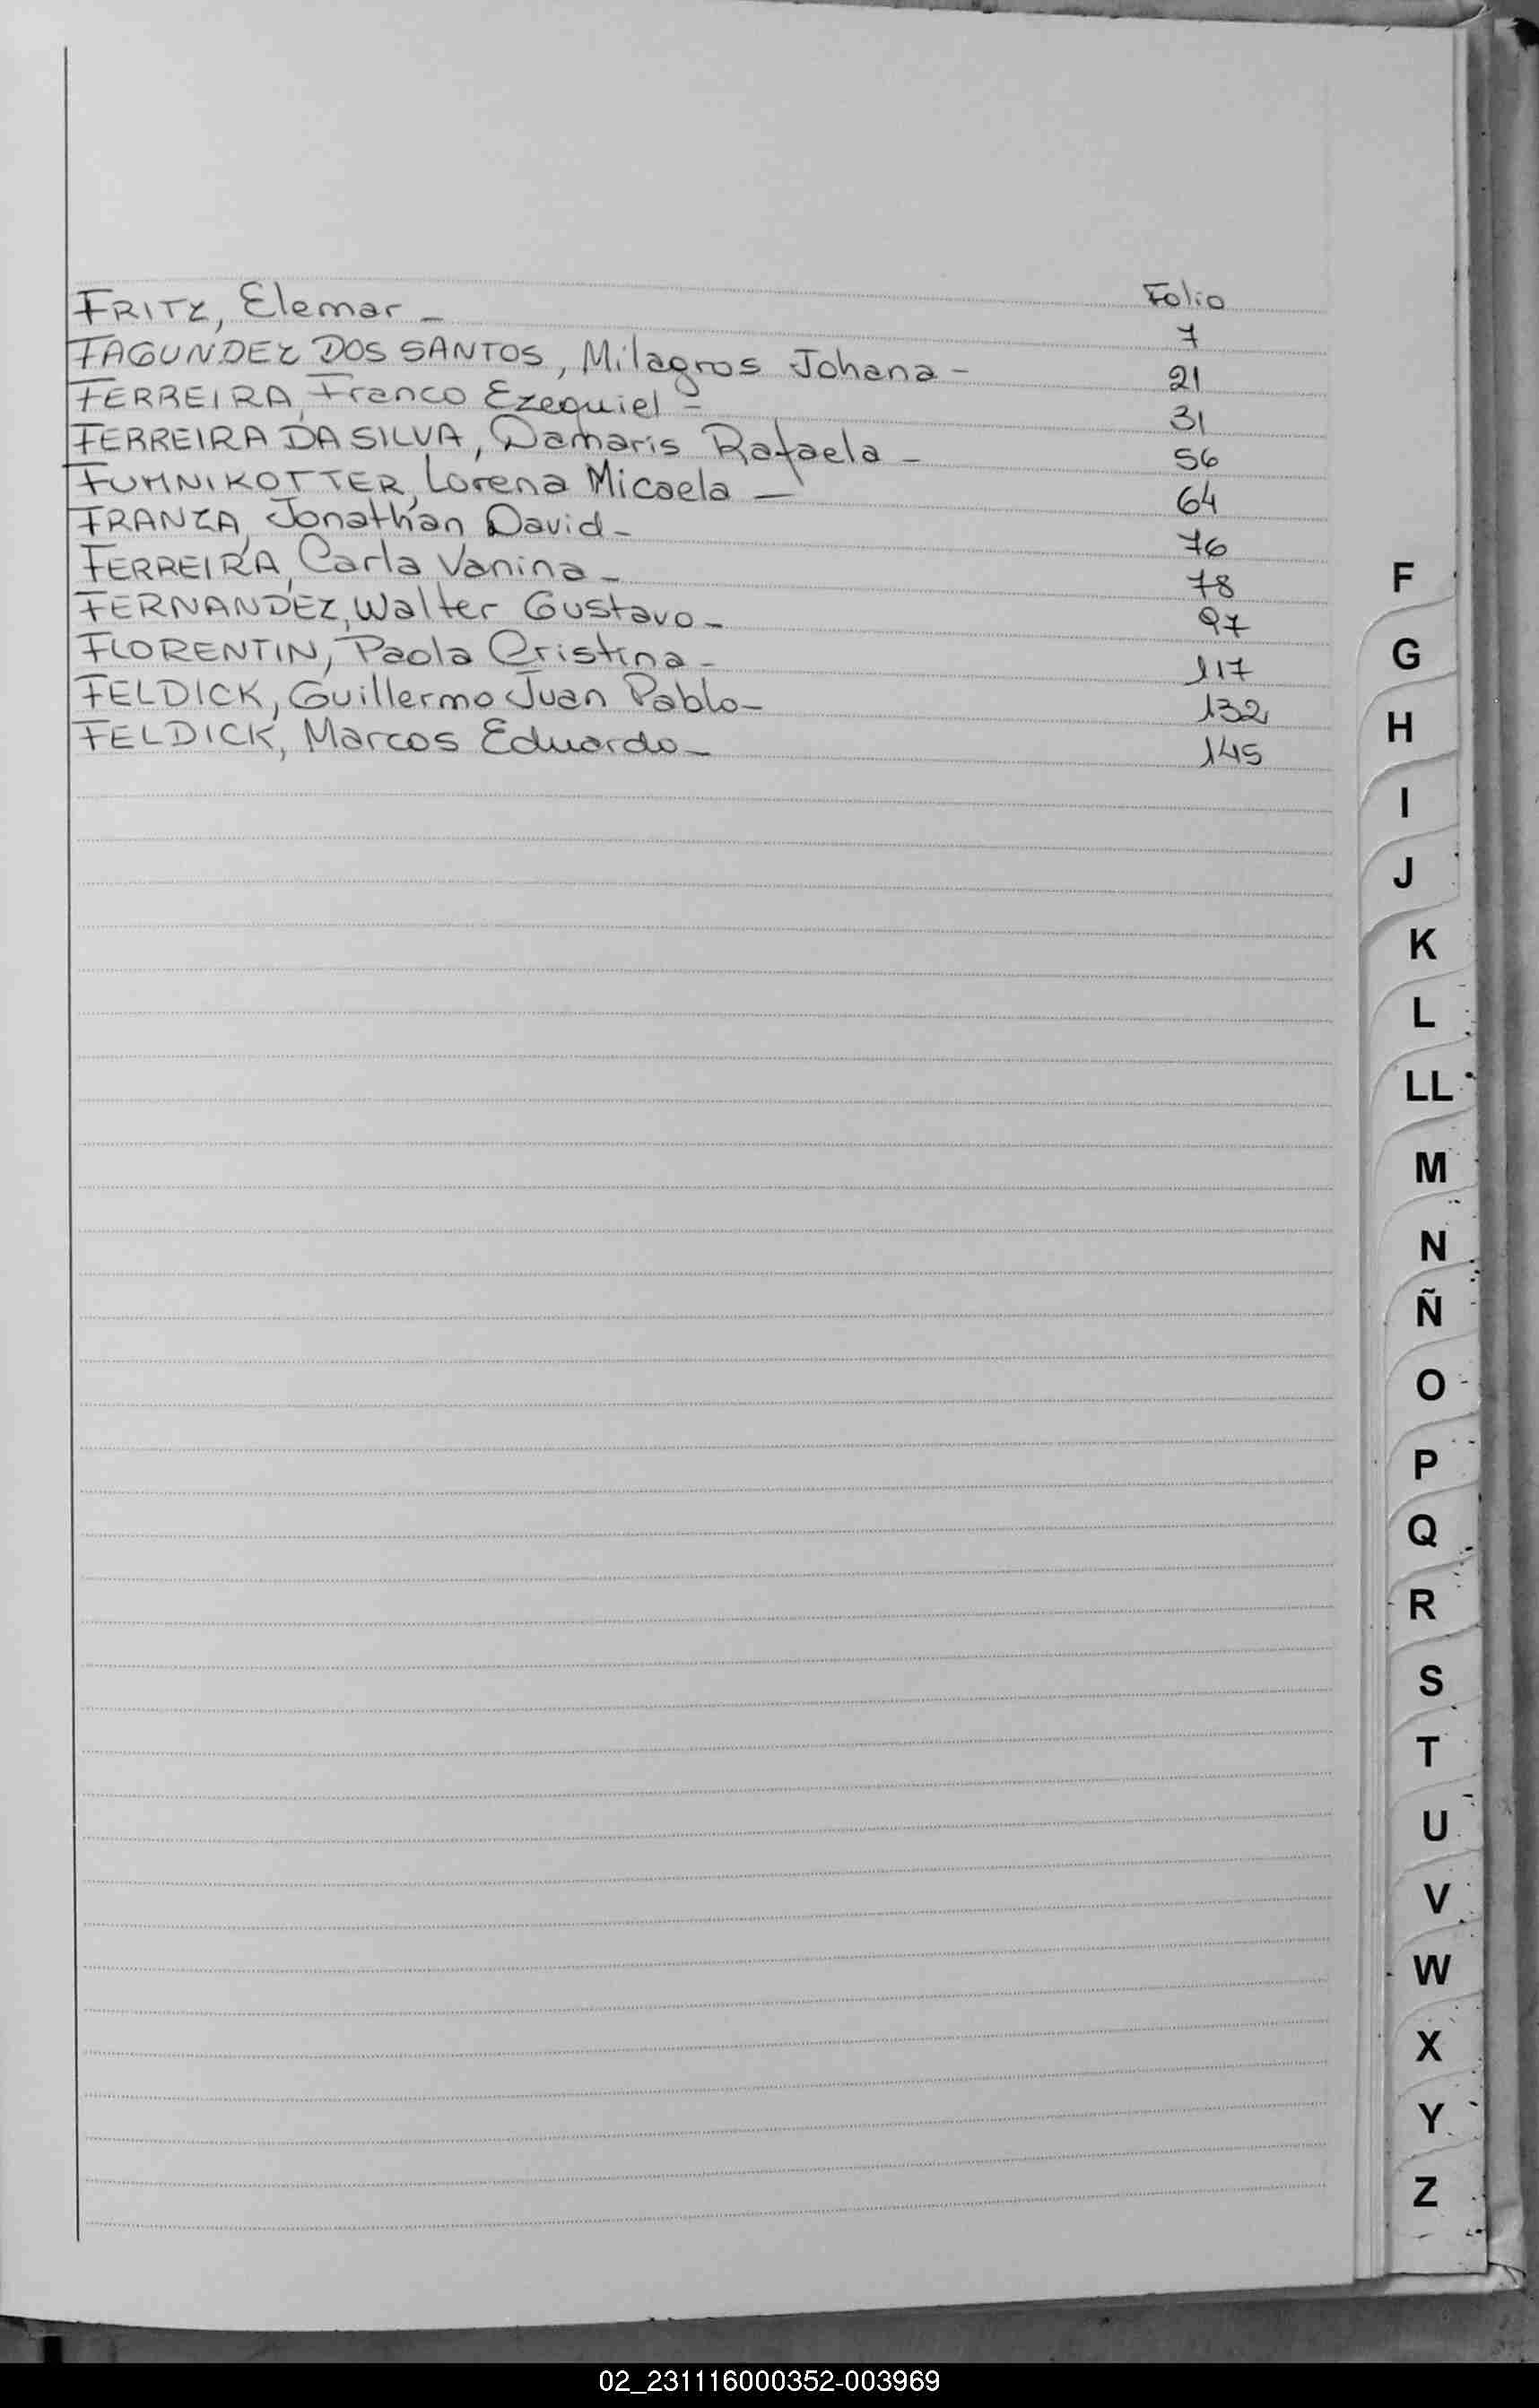 Folio
FRITZ, Elemar - 7
FAGUNDEZ DOS SANTOS, Milagros Johana - 21
FERREIRA, Franco Ezequiel - 31
FERREIRA DA SILVA, Damaris Rafaela - 56
FUHNIKOTTER, Lorena Micaela - 64
FRANZA, Jonathan David - 76
FERREIRA, Carla Vanina - 78
FERNANDEZ, Walter Gustavo - 97
FLORENTIN, Paola Cristina - 117
FELDICK, Guillermo Juan Pablo - 132
FELDICK, Marcos Eduardo - 145
F
G
H
I
J
K
L
LL
M
N
Ñ
O
P
Q
R
S
T
U
V
W
X
Y
Z
02_231116000352-003969